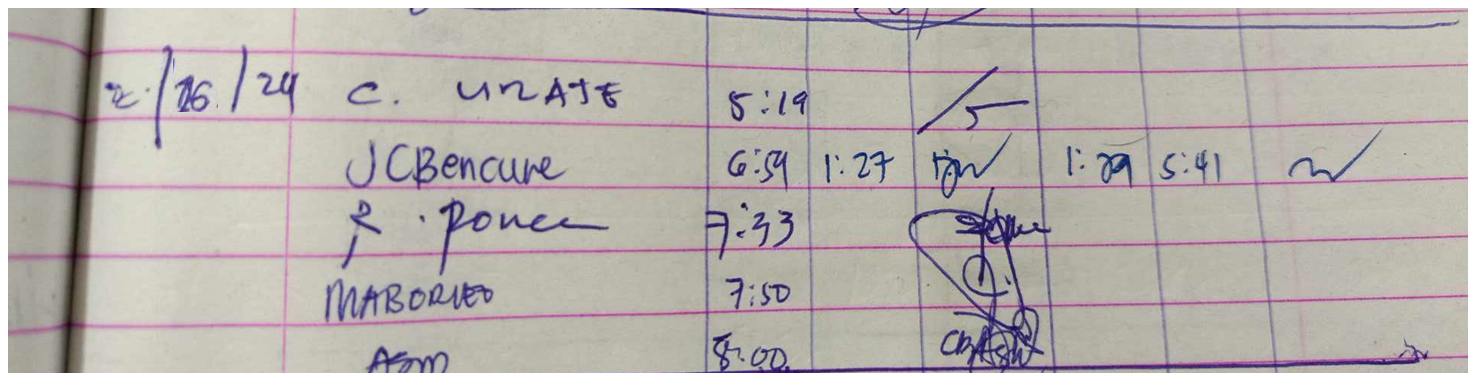 2/26/24 C. UNATE 5:19
JCBencure 6:59 1:27 1:29 5:41
R. Ponce 7:33
MABORLEO 7:50
ASM 8:00